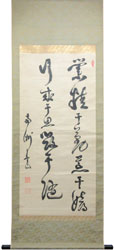 業精于勤荒于嬉
行成于思毀于随